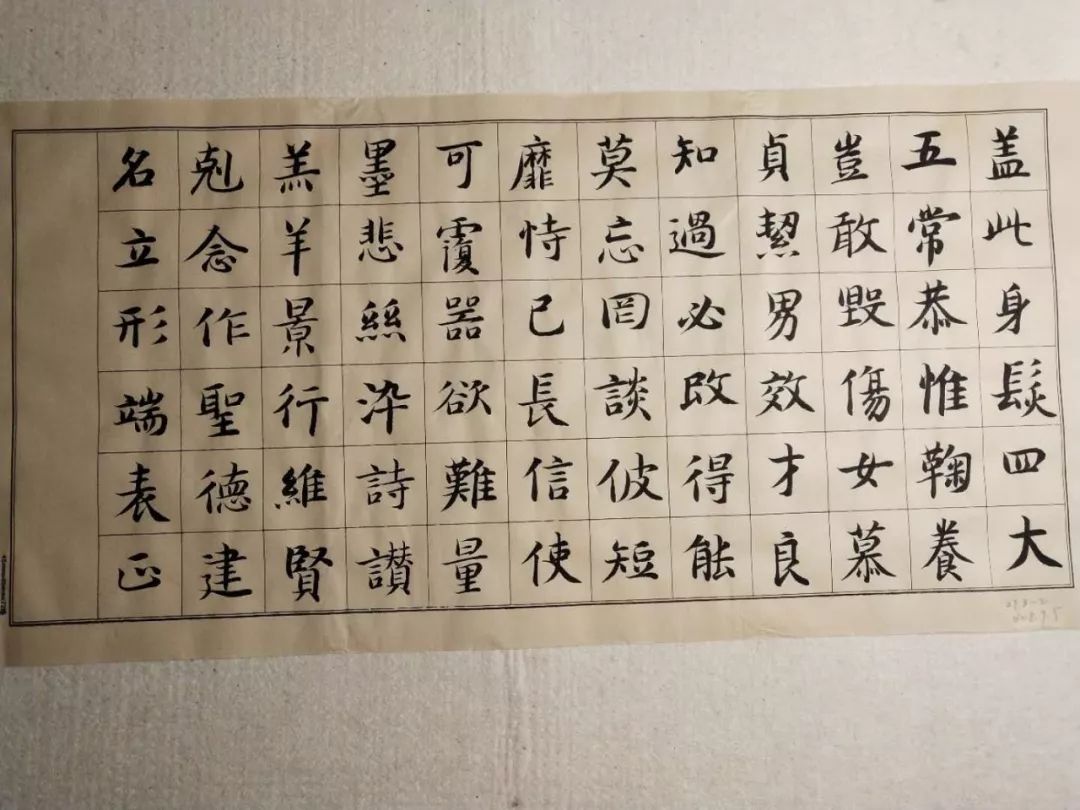 盖此身髮四大
五常恭惟鞠養
豈敢毀傷女慕
貞絜男效才良
知過必改得能
莫忘罔談彼短
靡恃己長信使
可覆器欲難量
墨悲絲染詩讃
羔羊景行維賢
剋念作聖德建
名立形端表正